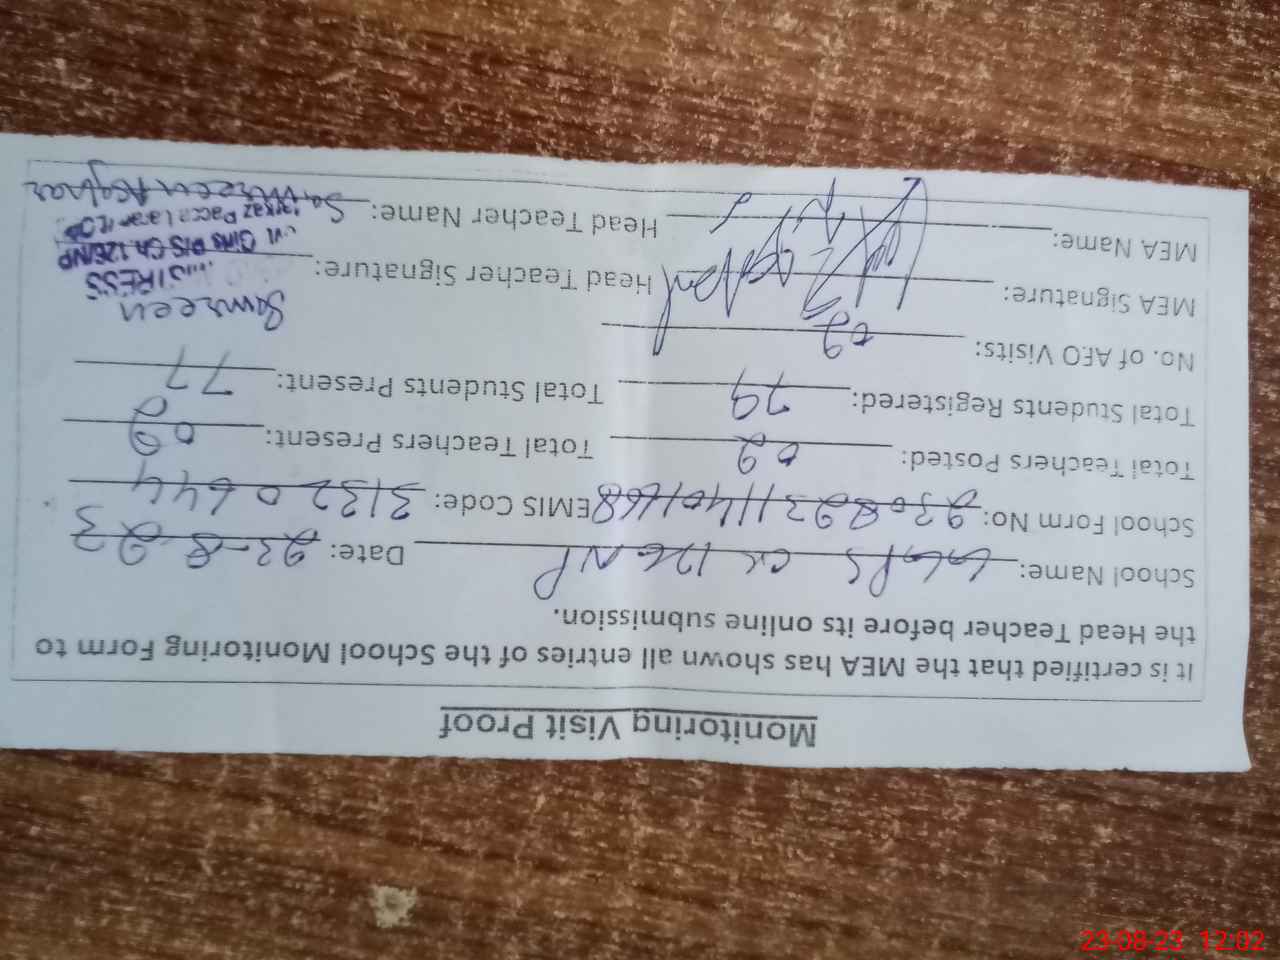 Monitoring Visit Proof
It is certified that the MEA has shown all entries of the School Monitoring Form to
the Head Teacher before its online submission.
School Name: GGPS CH 126 NP Date: 23-8-23
School Form No: 23082311401668 EMIS Code: 31320644
Total Teachers Posted: 02 Total Teachers Present: 02
Total Students Registered: 79 Total Students Present: 77
No. of AEO Visits: 02
MEA Signature: Head Teacher Signature: Samreen
MEA Name: Head Teacher Name: Samreen Asghar
Girls P/S Ch. 126/NP
23-08-23 12:02